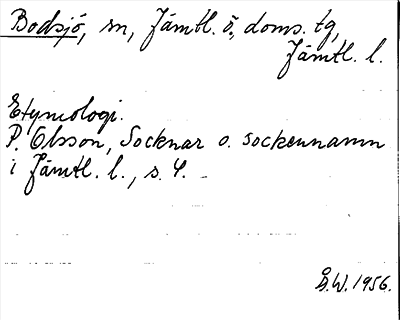 Bodsjö, sn, Jämtl. ö., doms. tg,
Jämtl. l.
Etymologi.
P. Olsson, Socknar o. sockennamn
i Jämtl. l., s. 4.
G.W. 1956.